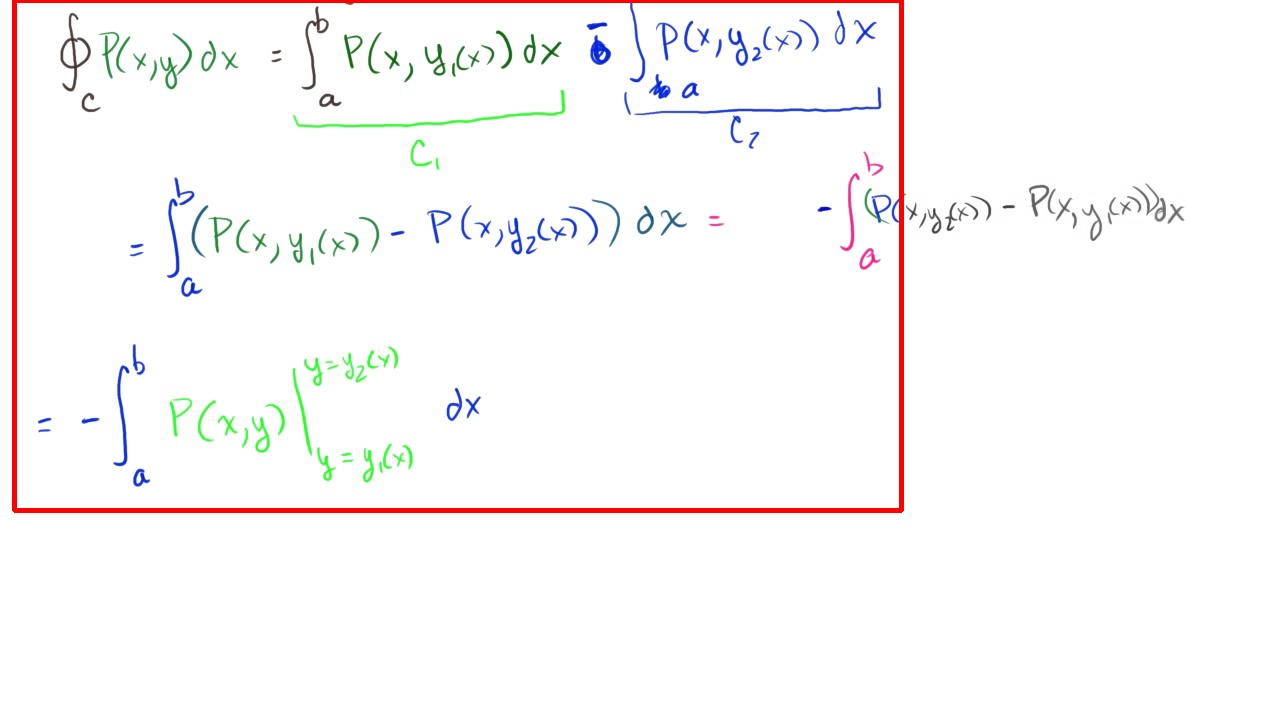 ∮_C P(x,y) dx = ∫_a^b P(x, y₁(x)) dx - ∫_a P(x, y₂(x)) dx
C₁ C₂
= ∫_a^b (P(x, y₁(x)) - P(x, y₂(x))) dx = - ∫_a^b (P(x, y₂(x)) - P(x, y₁(x))) dx
= - ∫_a^b P(x,y) |_{y = y₁(x)}^{y = y₂(x)} dx